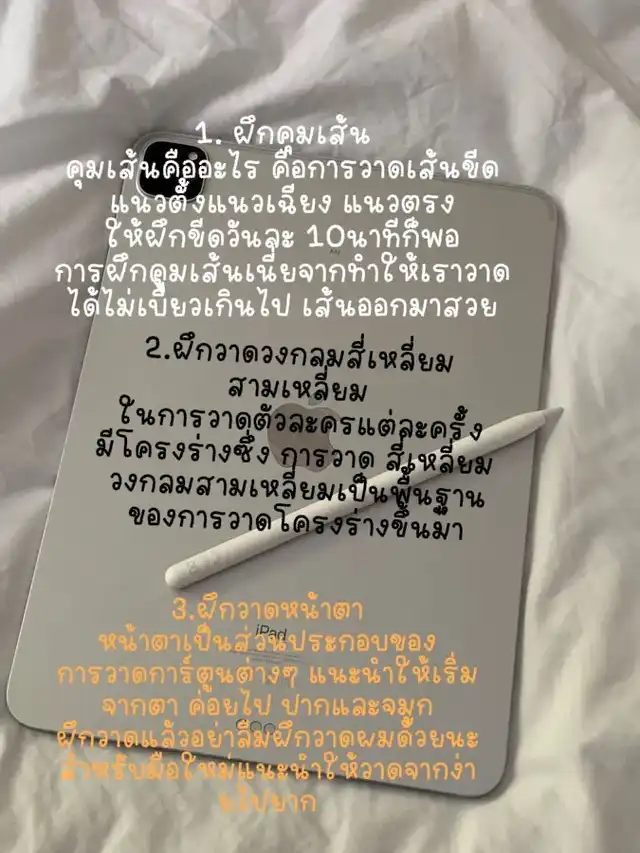 1. ฝึกคุมเส้น
คุมเส้นคืออะไร คือการวาดเส้นขีด
แนวตั้งแนวเฉียง แนวตรง
ให้ฝึกขีดวันละ 10นาทีก็พอ
การฝึกคุมเส้นเนี่ยจากทำให้เราวาด
ได้ไม่เบี้ยวเกินไป เส้นออกมาสวย
2.ฝึกวาดวงกลมสี่เหลี่ยม
สามเหลี่ยม
ในการวาดตัวละครแต่ละครั้ง
มีโครงร่างซึ่ง การวาด สี่เหลี่ยม
วงกลมสามเหลี่ยมเป็นพื้นฐาน
ของการวาดโครงร่างขึ้นมา
3.ฝึกวาดหน้าตา
iPad
หน้าตาเป็นส่วนประกอบของ
การวาดการ์ตูนต่างๆ แนะนำให้เริ่ม
จากตา ค่อยไป ปากและจมูก
ฝึกวาดแล้วอย่าลืมฝึกวาดผมด้วยนะ
สำหรับมือใหม่แนะนำให้วาดจากง่า
ยไปยาก